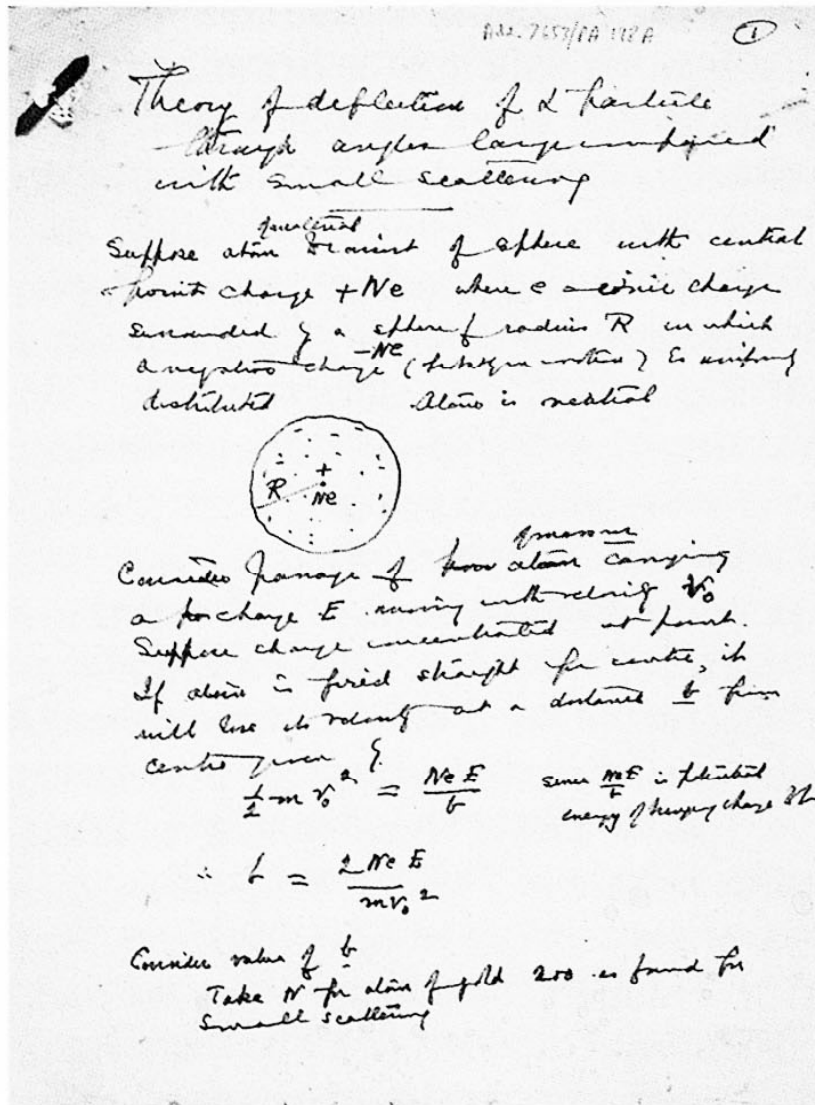 Add. 7653/PA 192 A
1
Theory of deflection of α particle
through angles large compared
with small scattering
of material
Suppose atom consist of sphere with central
point charge +Ne where e = ionic charge
surrounded by a sphere of radius R in which
−Ne
a negative charge ( ) is uniformly
distributed Atom is neutral
+
R Ne
of mass m
Consider passage of atom carrying
a pos charge E moving with velocity v₀
Suppose charge concentrated at point.
If atom is fired straight for centre, it
will lose its velocity at a distance b from
centre given by
½ m v₀² = NeE/b since NeE/b is potential
energy of bringing charge
∴ b = 2NeE/mv₀²
Consider value of b
Take N for atom of gold 200 as found for
small scattering